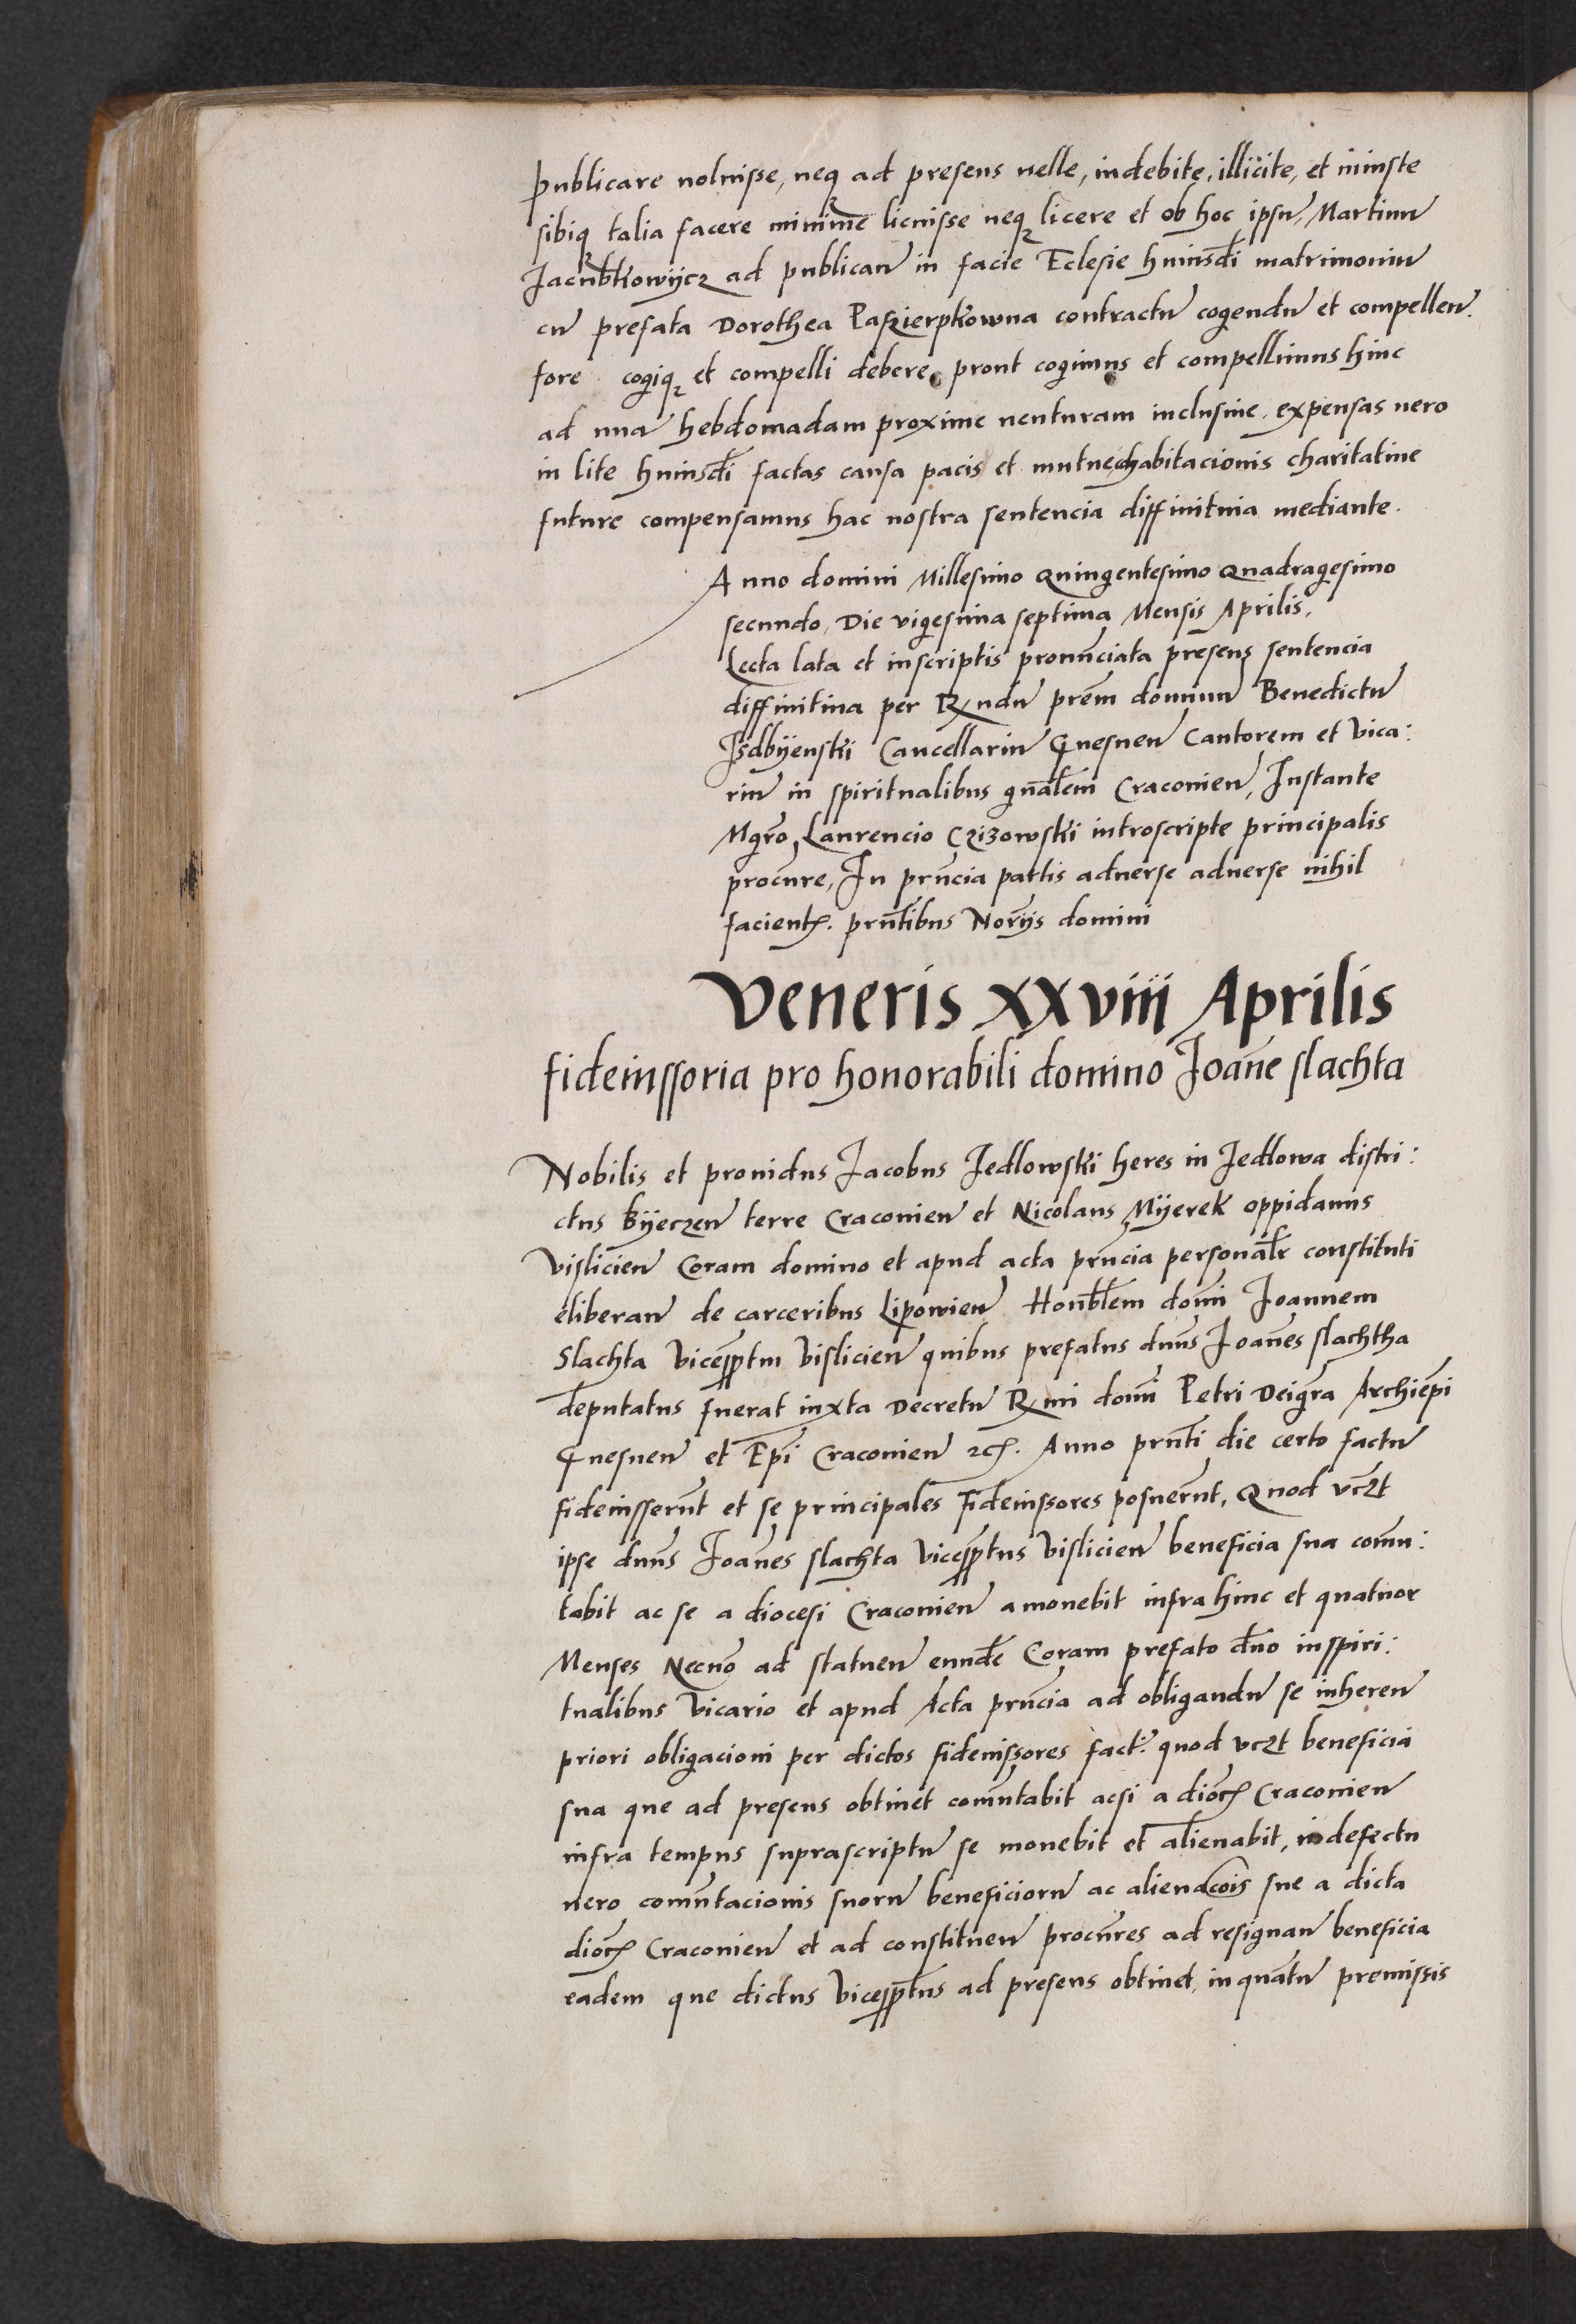 publicare noluisse, neq₃ ad presens uelle, indebite, illicite, et iniuste
sibiq₃ talia facere minime licuisse neq₃ licere et ob hoc ipsu Martinu
Jacubkowijcz ad publican in facie Eclesie huiusdi matrimoniu
cu prefata Dorothea Paszierpkowna contractu cogendu et compellen.
fore cogiq₃ et compelli debere prout cogimus et compellimus hinc
ad una hebdomadam proxime uenturam inclusiue. expensas uero
in lite huiusdi factas causa pacis et mutue habitacionis charitatiue
future compensamus hac nostra sentencia diffinitiua mediante.
Anno domini Millesimo Quingentesimo Quadragesimo
secundo, Die vigesima septima Mensis Aprilis,
Lecta lata et inscriptis pronunciata presens sentencia
diffinitiua per R̃ndu prem dominu Benedictu
Isdbijenski Cancellariu Gnesnen Cantorem et Vica:
riu in spiritualibus gnalem Craconien, Instante
Mgro Laurencio Czizowski introscripte principalis
procure, In prncia partis aduerse aduerse nihil
facient. prntibus Norijs domini
Veneris XXViii Aprilis
fideiussoria pro honorabili domino Joane slachta
Nobilis et prouidus Jacobus Jedlowski heres in Jedlowa distri:
ctus Byeczen terre Craconien et Nicolaus Mijerek oppidanus
Vislicien Coram domino et apud acta prncia personalr constituti
eliberan de carceribus Lipowien Honblem domi Joannem
Slachta Vicesptm Vislicien quibus prefatus dnus Joanes slachtha
deputatus fuerat iuxta Decretu R̃mi domi Petri Deigra Archiepi
Gnesnen et Epi Craconien 2c. Anno prnti die certo factu
fideiusserunt et se principales fideiussores posuerunt, Quod vczt
ipse dnus Joanes slachta Vicesptus Vislicien beneficia sua comu:
tabit ac se a diocesi Craconien amouebit infra hinc et quatuor
Menses Necno ad statuen eunde Coram prefato dno inspiri:
tualibus Vicario et apud Acta prncia ad obligandu se inheren
priori obligacioni per dictos fideiussores fact. quod vczt beneficia
sua que ad presens obtinet comutabit acsi a dioc Craconien
infra tempus suprascriptu se mouebit et alienabit, in defectu
uero comutacionis suoru beneficioru ac alienacois sue a dicta
dioc Craconien et ad constituen procures ad resignan beneficia
eadem que dictus Vicesptus ad presens obtinet, in quantu premissis